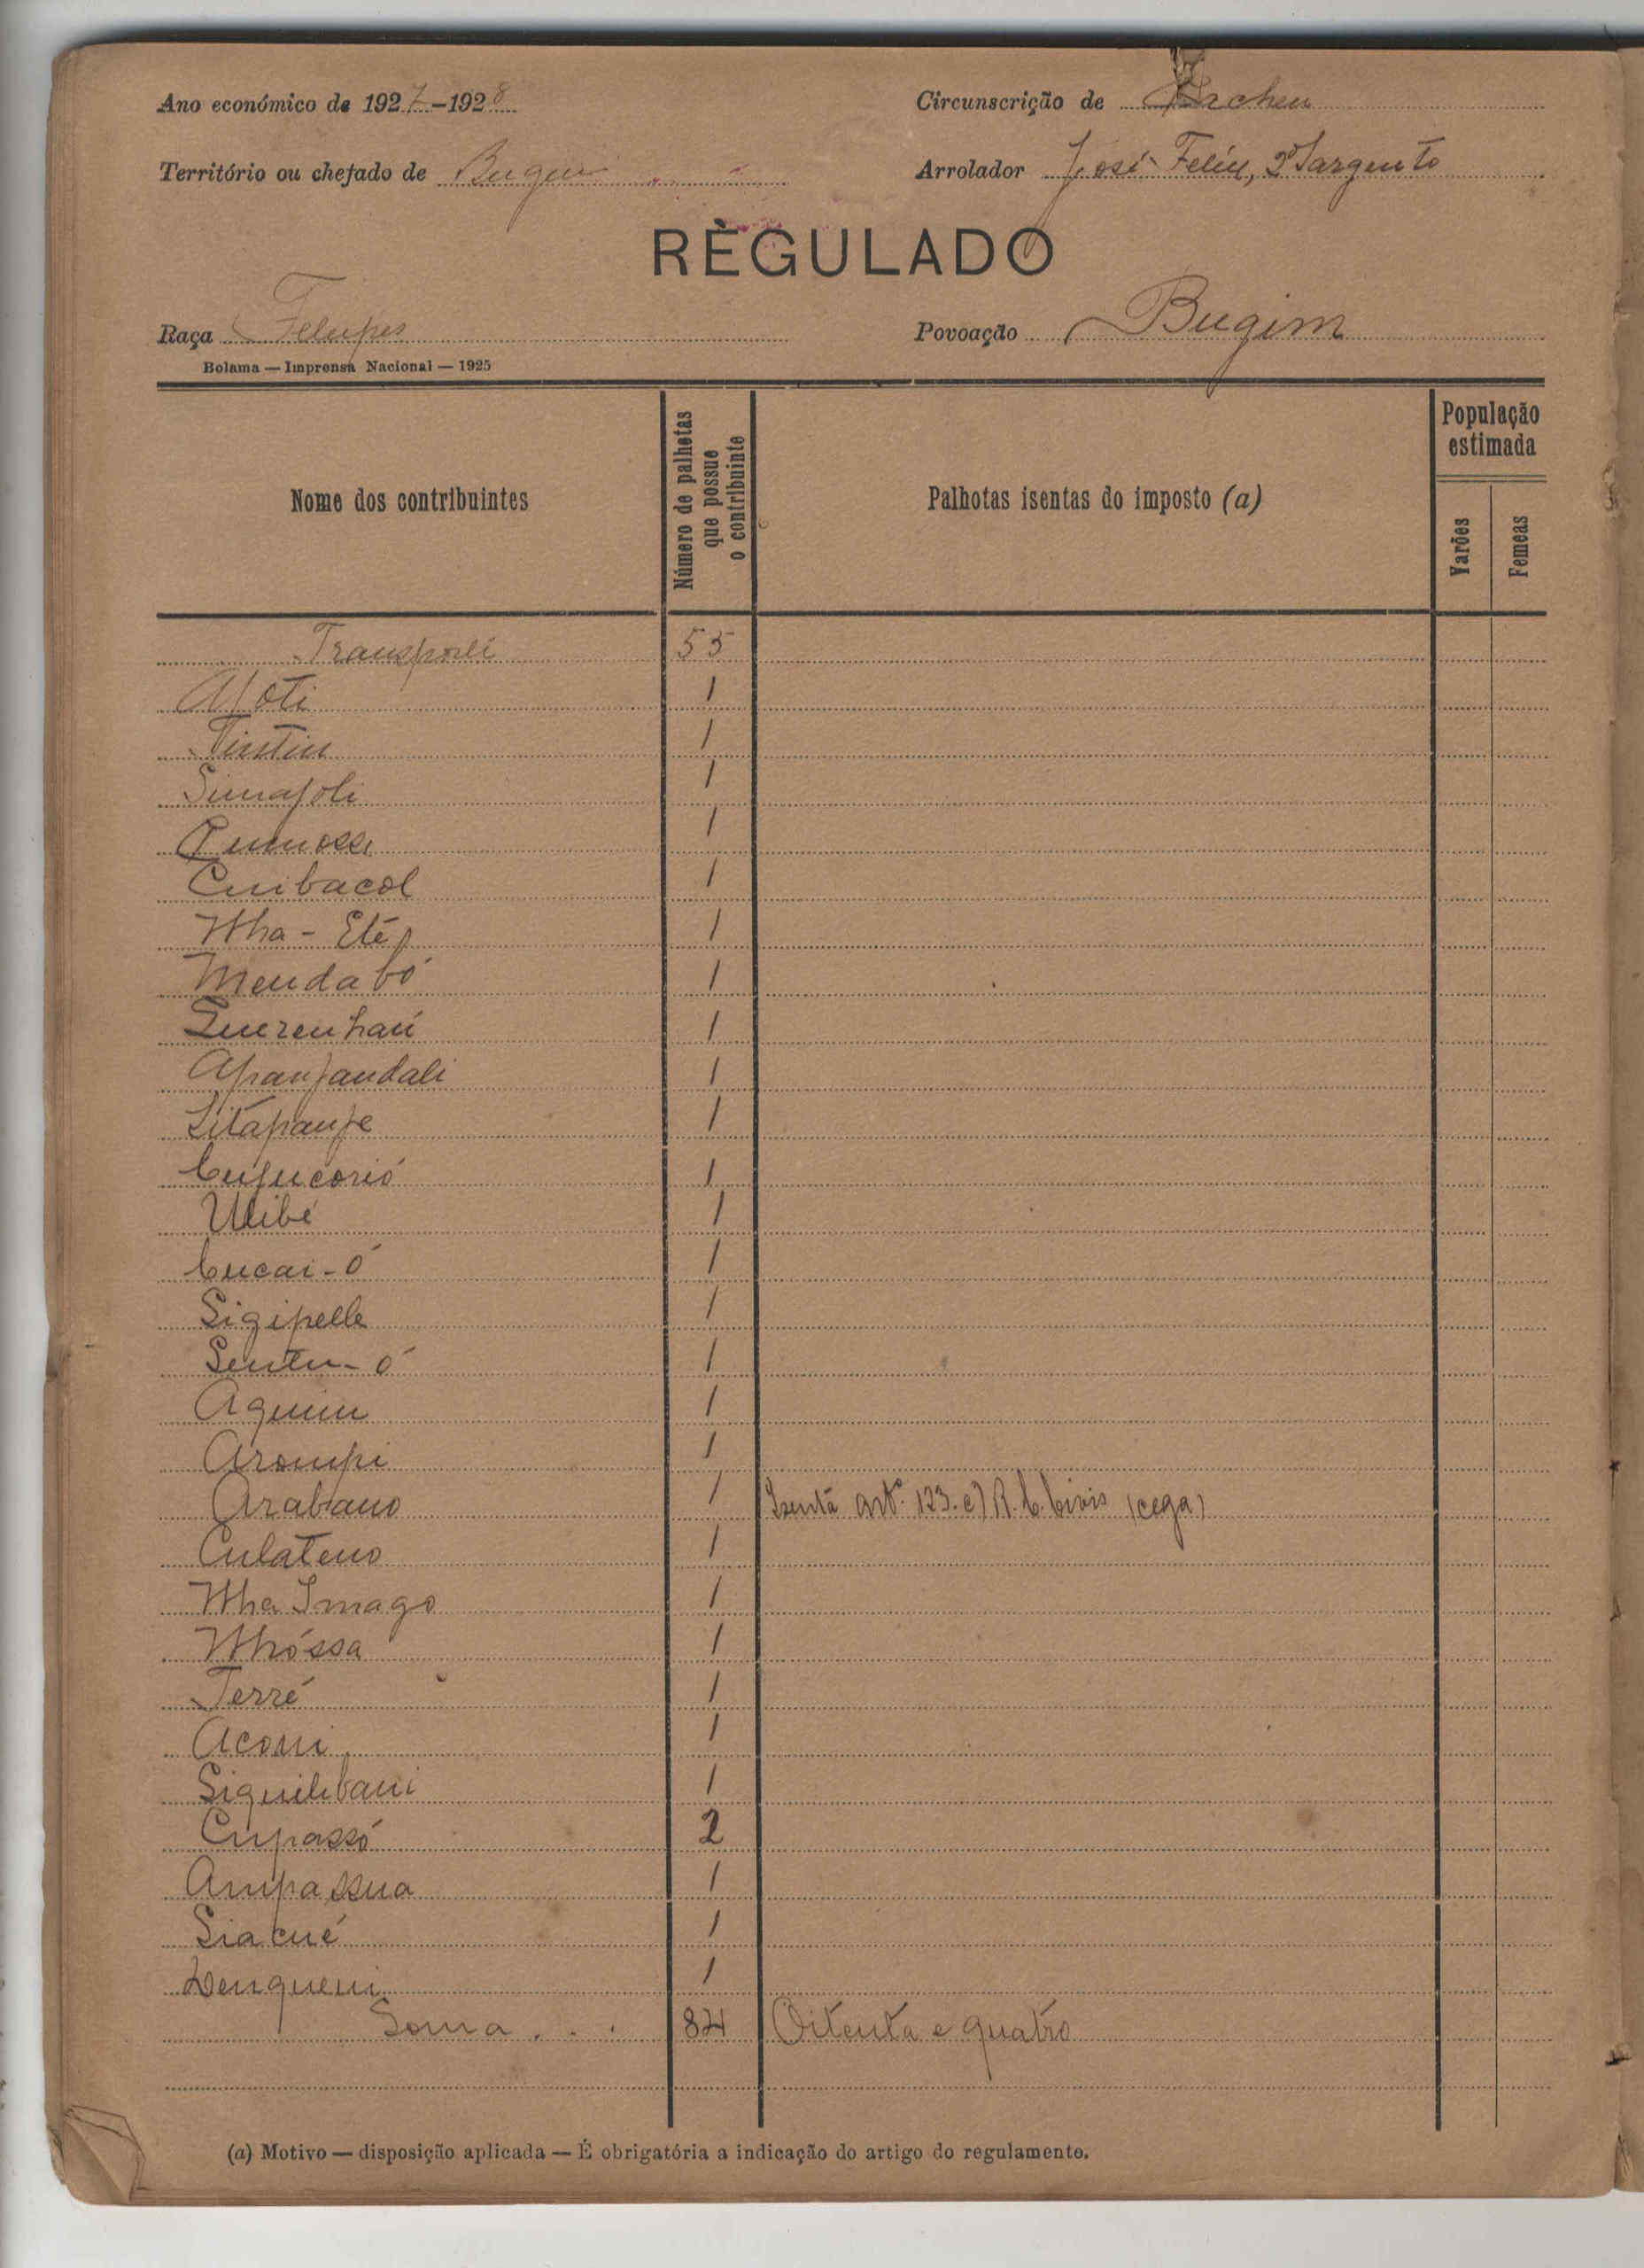 Ano económico de 1927-1928
Circunscrição de Cacheu
Território ou chefado de Bugim
Arrolador José Felix, 2º Sargento
RÈGULADO
Raça Felupes
Povoação Bugim
Bolama — Imprensa Nacional — 1925
Nome dos contribuintes
Número de palhotas que possue o contribuinte
Palhotas isentas do imposto (a)
População estimada
Varões
Femeas
Transporte 55
Afoti 1
Tintin 1
Simajoli 1
1
Cuibacol 1
Nha-Eté 1
Mendabó 1
Querenhaú 1
Apanjandali 1
Sitápanje 1
Cujucorió 1
Ulibé 1
Cucai-ó 1
Sigipelle 1
Sentu-ó 1
Aguim 1
Arompi 1
Arabano 1 Isenta art. 123. e) R. C. Civis (cega)
Culateno 1
Nha Imago 1
Nhóssa 1
Terré 1
Aconi 1
Siquilibani 1
Cupassó 2
Ampassua 1
Siacué 1
Denqueni 1
Soma . . . 84 Oitenta e quatro
(a) Motivo — disposição aplicada — É obrigatória a indicação do artigo do regulamento.